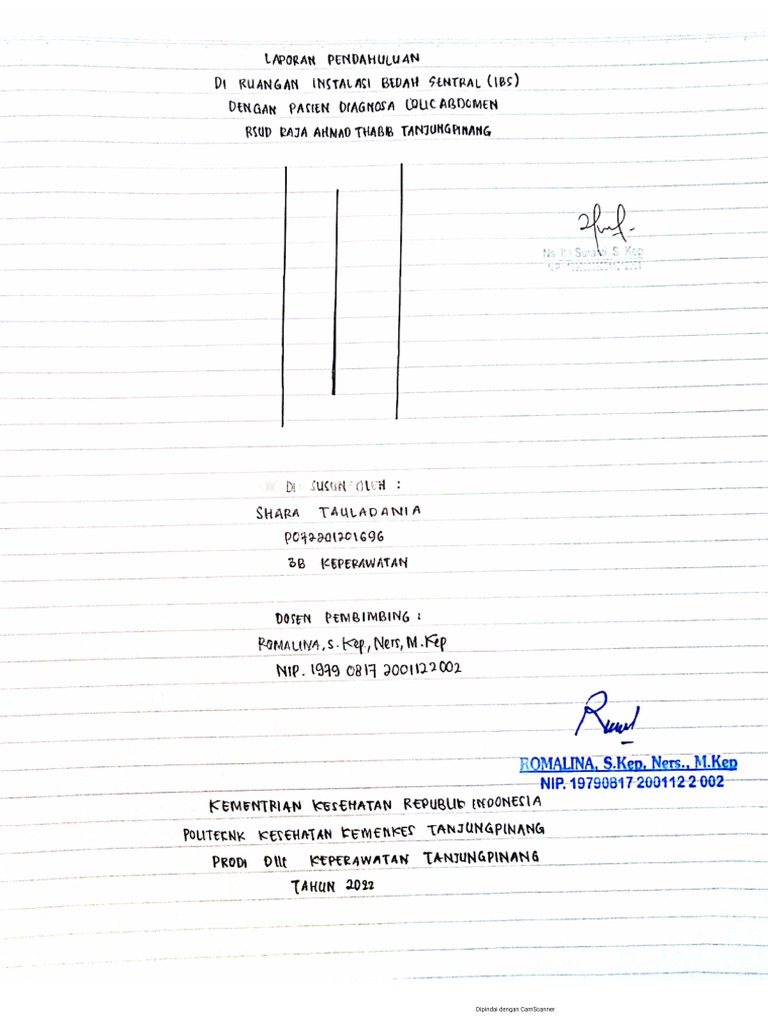 LAPORAN PENDAHULUAN
DI RUANGAN INSTALASI BEDAH SENTRAL (IBS)
DENGAN PASIEN DIAGNOSA COLIC ABDOMEN
RSUD RAJA AHMAD THABIB TANJUNGPINANG
S. Kep
DI SUSUN OLEH :
SHARA TAULADANIA
P072201201696
3B KEPERAWATAN
DOSEN PEMBIMBING :
ROMALINA, S. Kep, Ners, M. Kep
NIP. 1979 0817 2001122002
ROMALINA, S.Kep, Ners., M.Kep
NIP. 19790817 200112 2 002
KEMENTRIAN KESEHATAN REPUBLIK INDONESIA
POLITEKNK KESEHATAN KEMENKES TANJUNGPINANG
PRODI DIII KEPERAWATAN TANJUNGPINANG
TAHUN 2022
Dipindai dengan CamScanner